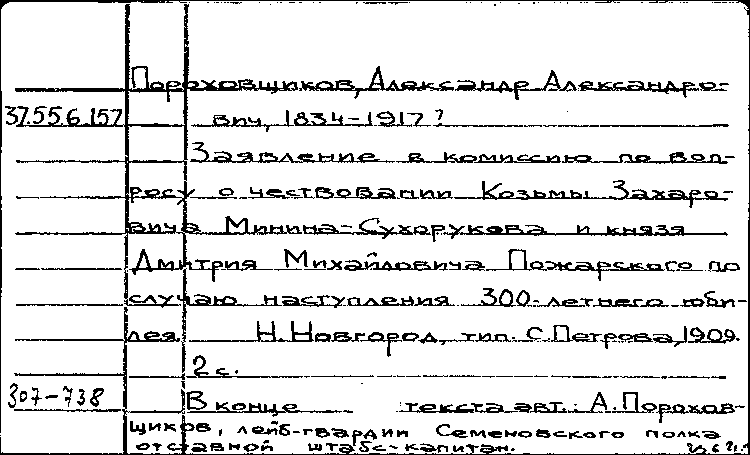 Пороховщиков, Александр Александро-
37.55.6.157 вич, 1834-1917?
Заявление в комиссию по воп-
росу о чествовании Козьмы Захаро-
вича Минина-Сухорукова и князя
Дмитрия Михайловича Пожарского по
случаю наступления 300-летнего юби-
лея. Н. Новгород, тип. С. Петрова, 1909.
2 с.
307-738 В конце текста авт.: А. Порохов-
щиков, лейб-гвардии Семеновского полка
отставной штабс-капитан.